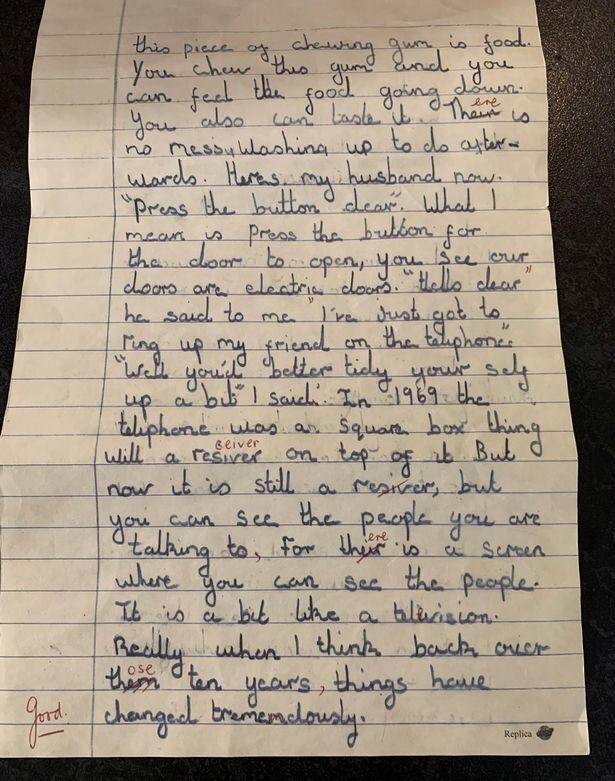 this piece of chewing gum is food.
You chew this gum and you
can feel the food going down.
You also can taste it. Their ere is
no messy washing up to do after-
wards. Heres my husband now.
"Press the button dear". What I
mean is Press the button for
the door to open, you see our
doors are electric doors. "Hallo dear"
he said to me "I've Just got to
ring up my friend on the telephone".
"Well you'd better tidy your self
up a bit" I said. In 1969 the
telephone was a square box thing
will a resiver ceiver on top of it But
now it is still a resiver, but
you can see the people you are
talking to, for their ere is a screen
where you can see the people.
It is a bit like a television.
Really when I think back over
them ose ten years, things have
good. changed trememdously.
Replica